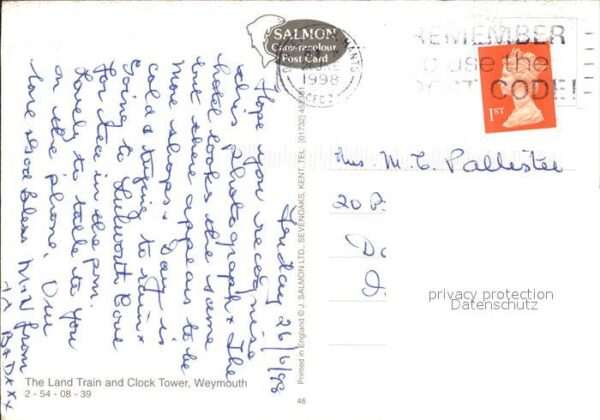 SALMON
Cameracolour
Post Card
1998
REMEMBER
to use the
POST CODE!
1ST
Tuesday 26/6/98
Hope you recognise
this photograph. The
hotel looks the same
but there appears to be
more shops. Day is
cold & trying to rain.
Going to Lulworth Cove
for tea in the pm.
Lovely to talk to you
on the phone. Our
love God Bless M.N from
Mrs. M. C. Pallister
20
privacy protection
Datenschutz
Printed in England © J. SALMON LTD., SEVENOAKS, KENT. TEL: (01732) 452381
The Land Train and Clock Tower, Weymouth
2 - 54 - 08 - 39
46